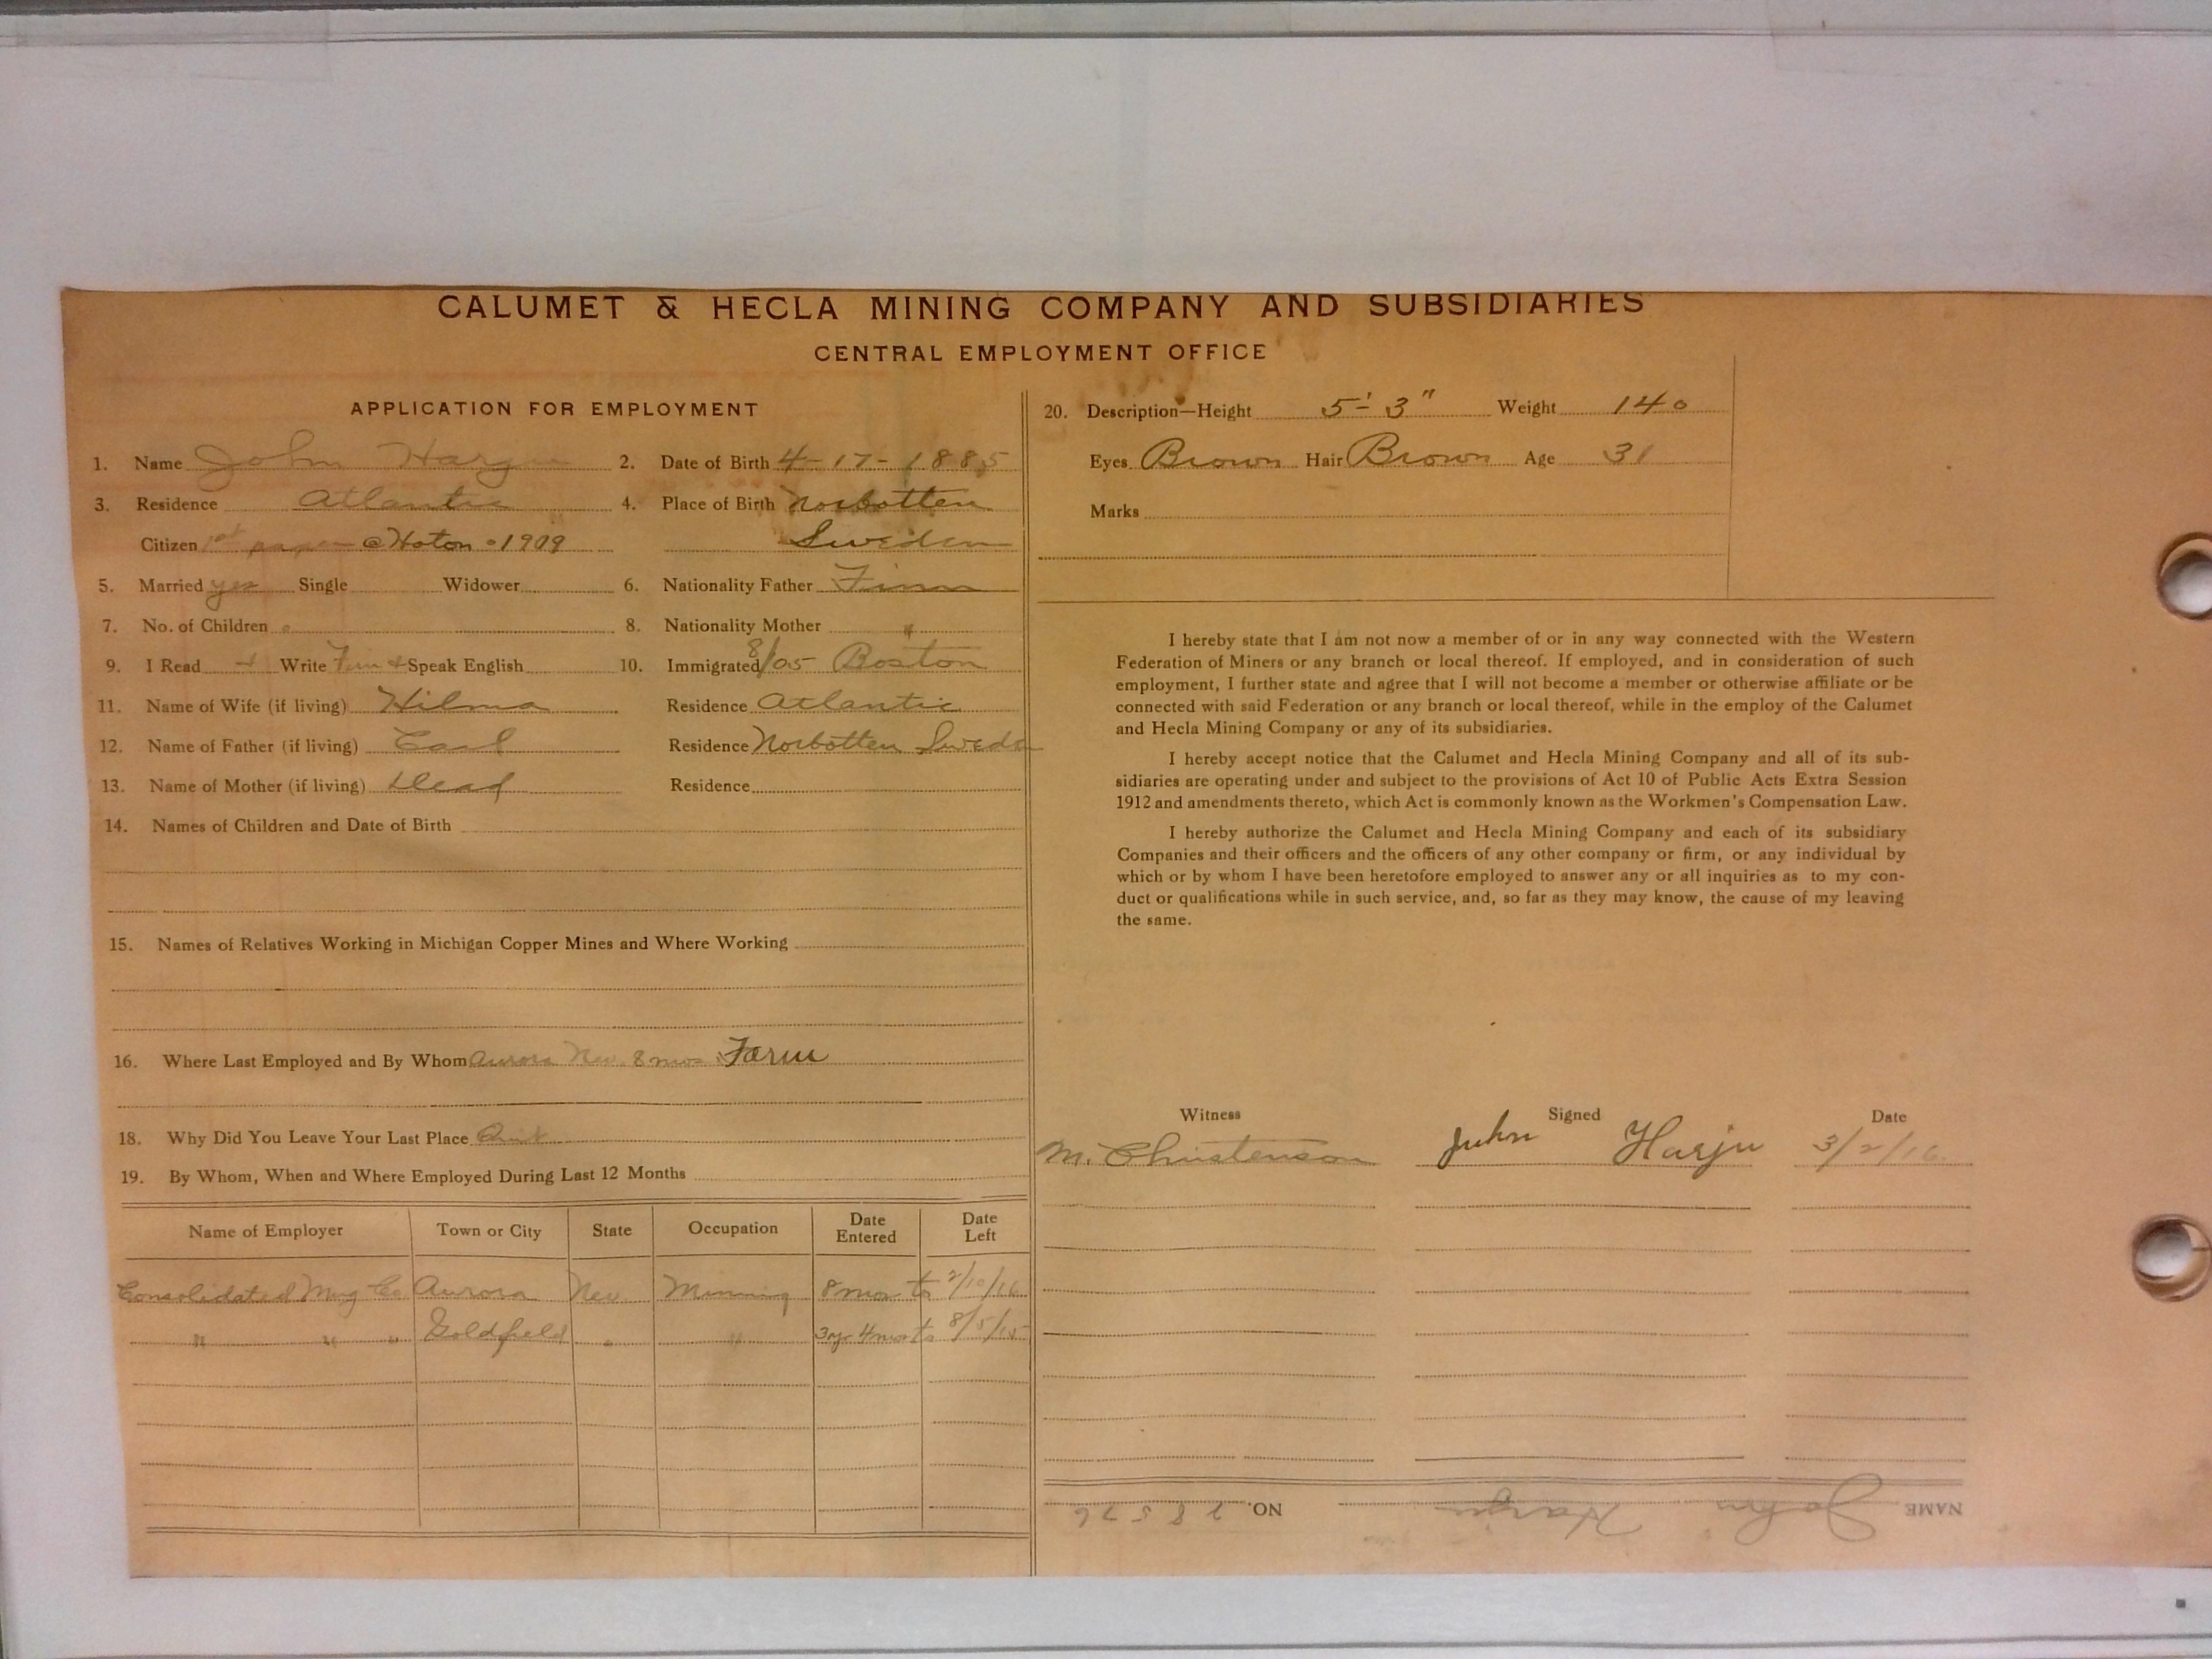 CALUMET & HECLA MINING COMPANY AND SUBSIDIARIES
CENTRAL EMPLOYMENT OFFICE
APPLICATION FOR EMPLOYMENT
1. Name John Harju 2. Date of Birth 4-17-1885
3. Residence Atlantic 4. Place of Birth Norbotten
Citizen 1st paper @ Hoton 1909 Sweden
5. Married yes Single Widower 6. Nationality Father Finn
7. No. of Children 0 8. Nationality Mother "
9. I Read + Write Finn + Speak English 10. Immigrated 8/05 Boston
11. Name of Wife (if living) Hilma Residence Atlantic
12. Name of Father (if living) Carl Residence Norbotten Sweden
13. Name of Mother (if living) Dead Residence
14. Names of Children and Date of Birth
15. Names of Relatives Working in Michigan Copper Mines and Where Working
16. Where Last Employed and By Whom Aurora Nev. 8 mos. Farm
18. Why Did You Leave Your Last Place Quit
19. By Whom, When and Where Employed During Last 12 Months
Name of Employer Town or City State Occupation Date Entered Date Left
Consolidated Mng Co Aurora Nev. Mining 8 mos to 2/10/16
" " " Goldfield " " 3 yr 4 mos to 8/5/15
20. Description—Height 5' 3" Weight 140
Eyes Brown Hair Brown Age 31
Marks
I hereby state that I am not now a member of or in any way connected with the Western
Federation of Miners or any branch or local thereof. If employed, and in consideration of such
employment, I further state and agree that I will not become a member or otherwise affiliate or be
connected with said Federation or any branch or local thereof, while in the employ of the Calumet
and Hecla Mining Company or any of its subsidiaries.
I hereby accept notice that the Calumet and Hecla Mining Company and all of its sub-
sidiaries are operating under and subject to the provisions of Act 10 of Public Acts Extra Session
1912 and amendments thereto, which Act is commonly known as the Workmen's Compensation Law.
I hereby authorize the Calumet and Hecla Mining Company and each of its subsidiary
Companies and their officers and the officers of any other company or firm, or any individual by
which or by whom I have been heretofore employed to answer any or all inquiries as to my con-
duct or qualifications while in such service, and, so far as they may know, the cause of my leaving
the same.
Witness Signed Date
M. Christenson John Harju 3/2/16
NAME John Harju NO. 28576